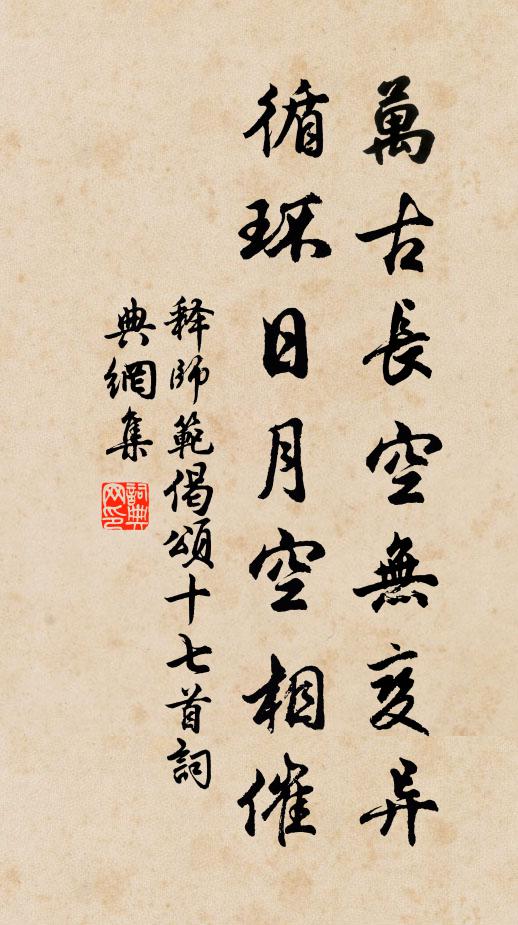 萬古長空無变异
循环日月空相催
释師範偈頌十七首詞
典網集
詞典网印